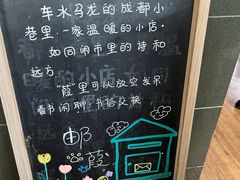 车水马龙的成都小
巷里.一家温暖的小店.
如同闹市里的诗和
远方
蓝里可以放空发呆
看书闲聊.书信交筷
邮
蓝